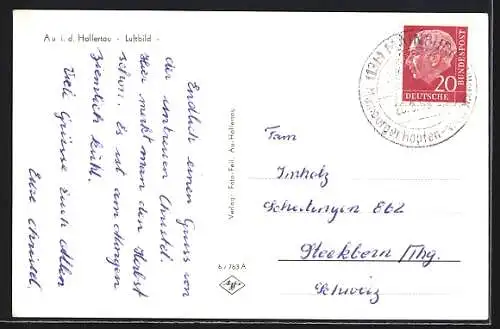 Au i. d. Hallertau - Luftbild -
Endlich einen Gruss von
der untreuen Christel.
Hier merkt man den Herbst
schon. Es ist am Morgen
ziemlich kühl.
Viele Grüsse Euch allen
Eure Christel.
Verlag: Foto-Feil, Au-Hallertau
6 / 763 A
20
DEUTSCHE
BUNDESPOST
(13b) MAINBURG
Hopfen-
Fam
Imholz
Steckborn /Thg.
Schweiz